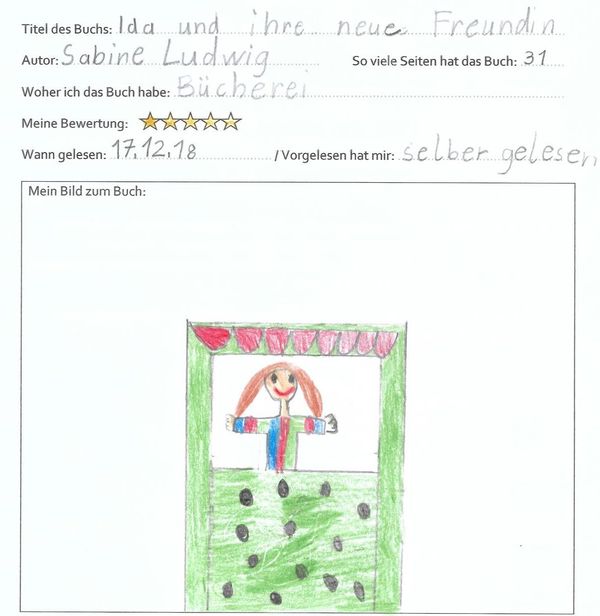 Titel des Buchs: Ida und ihre neue Freundin
Autor: Sabine Ludwig So viele Seiten hat das Buch: 31
Woher ich das Buch habe: Bücherei
Meine Bewertung:
Wann gelesen: 17.12.18 / Vorgelesen hat mir: selber gelesen
Mein Bild zum Buch: